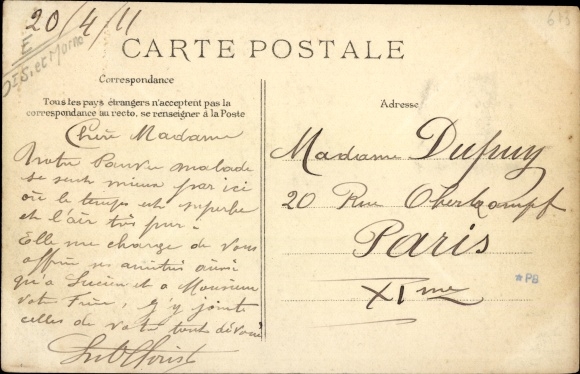 20/4/11
E
Dt S. et Marne
CARTE POSTALE
Correspondance
Tous les pays étrangers n'acceptent pas la
correspondance au recto, se renseigner à la Poste
Adresse
Chère Madame
Notre pauvre malade
se sent mieux par ici
où le temps est superbe
et l'air très pur.
Elle me charge de vous
offrir ses amitiés aussi
qu'à Lucien et a Monsieur
votre Frère, j'y joints
celles de votre tout dévoué
Madame Dupuy
20 Rue Oberkampf
Paris
XIme
*PB